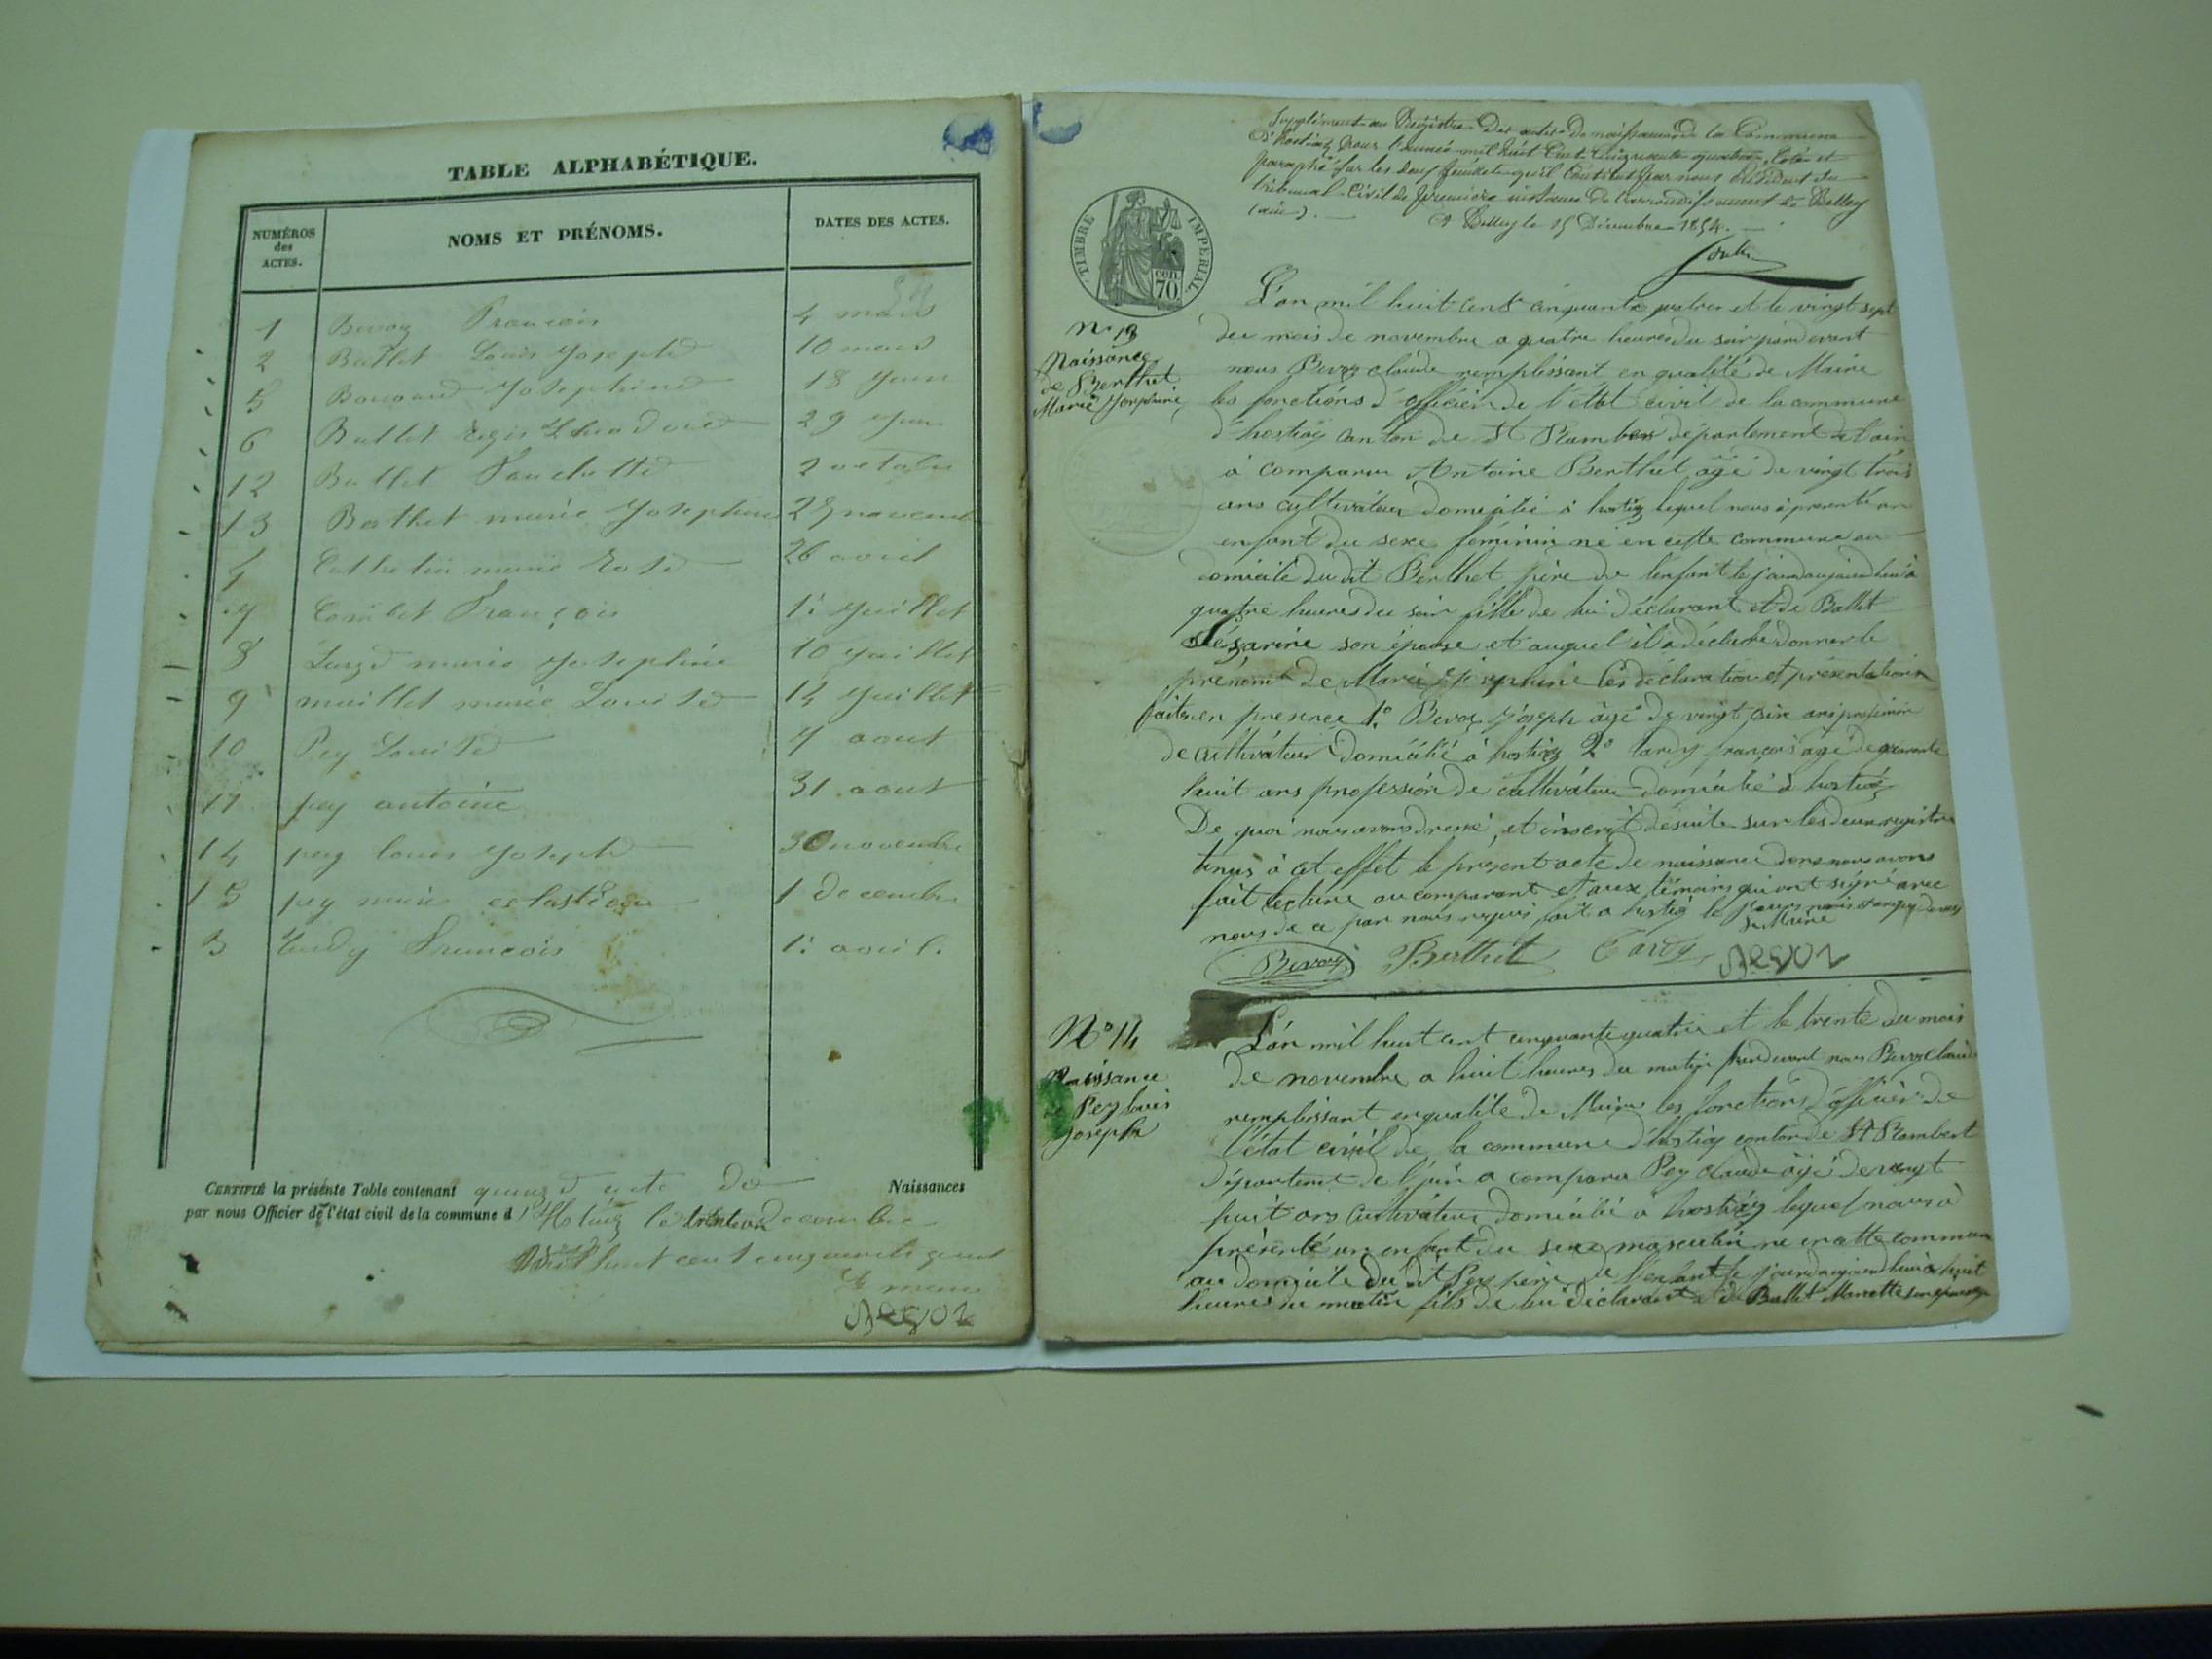 TABLE ALPHABÉTIQUE.
NUMÉROS des ACTES. NOMS ET PRÉNOMS. DATES DES ACTES.
1 Bevoz François 4 mars
2 Ballet Louis Joseph 10 mars
5 Josephine 18 juin
6 Ballet 29 juin
12 Ballet 2 octobre
13 Berthet marie Josephine novemb
4 marie 26 avril
7 François 1: Juillet
8 marie Josephine 10 Juillet
9 maillet marie Louise 14 Juillet
10 Pey Louise 7 aout
11 pey antoine 31 aout
14 pey louis Joseph 30 novembre
15 pey marie 1 decembre
3 tardy Francois 1: avril.
CERTIFIÉ la présente Table contenant quinze acte de Naissances
par nous Officier de l'état civil de la commune d' le decembre
huit cent cinquante quat
Le maire
Bevoz
Supplément au Registre Des actes De naissances De la Commune
D'hostiaz pour l'année mil huit Cent Cinquante quatre, Coté et
paraphé par les deux feuillets qu'il Contient par nous Président du
tribunal Civil de première instance De l'arrondissement de Belley
(ain).
A Belley le 15 Décembre 1854.
TIMBRE IMPERIAL
cen
70
L'an mil huit cent cinquante quatre et le vingt sept
du mois de novembre a quatre heures du soir pardevant
nous Bevoz claude remplissant en qualité de Maire
les fonctions d'officier de l'état civil de la commune
d'hostiaz canton de St Rambert département de l'ain
à comparu Antoine Berthet âgé de vingt trois
ans cultivateur domicilié à hostiaz lequel nous à présenté un
enfant du sexe féminin né en cette commune au
domicile du dit Berthet père de l'enfant le jourdaujourd'hui à
quatre heures du soir fille de lui déclarant et de Ballet
son épouse et auquel il a déclaré donner le
prénom de Marie Josephine les déclaration et présentation
faites en presence 1° Bevoz Joseph âgé de vingt six ans profession
de cultivateur domicilié à hostiaz 2° tardy françois agé de quarante
huit ans profession de cultivateur domicilié à hostiaz
De quoi nous avons dressé, et inscrit desuite sur les deux registre
tenus à cet effet le présent acte de naissance dont nous avons
fait lecture au comparant et aux témoins qui ont signé avec
nous de ce par nous requis fait a hostiaz le jours mois et an que dessus
Le Maire
Bevoz Berthet Tardy Bevoz
N° 13
Naissance
de Berthet
Marie Josephine
N° 14
Naissance
de Pey louis
Joseph
L'an mil huit cent cinquante quatre et le trente du mois
de novembre a huit heures du matin pardevant nous Bevoz claude
remplissant en qualité de Maire les fonctions d'officier de
l'état civil de la commune d'hostiaz canton de St Rambert
département de l'ain a comparu Pey claude âgé de vingt
huit ans cultivateur domicilié à hostiaz lequel nous à
présenté un enfant du sexe masculin né en cette commune
au domicile du dit Pey père de l'enfant le jourdaujourd'hui à huit
heures du matin fils de lui déclarant et de Ballet Mariette son épouse